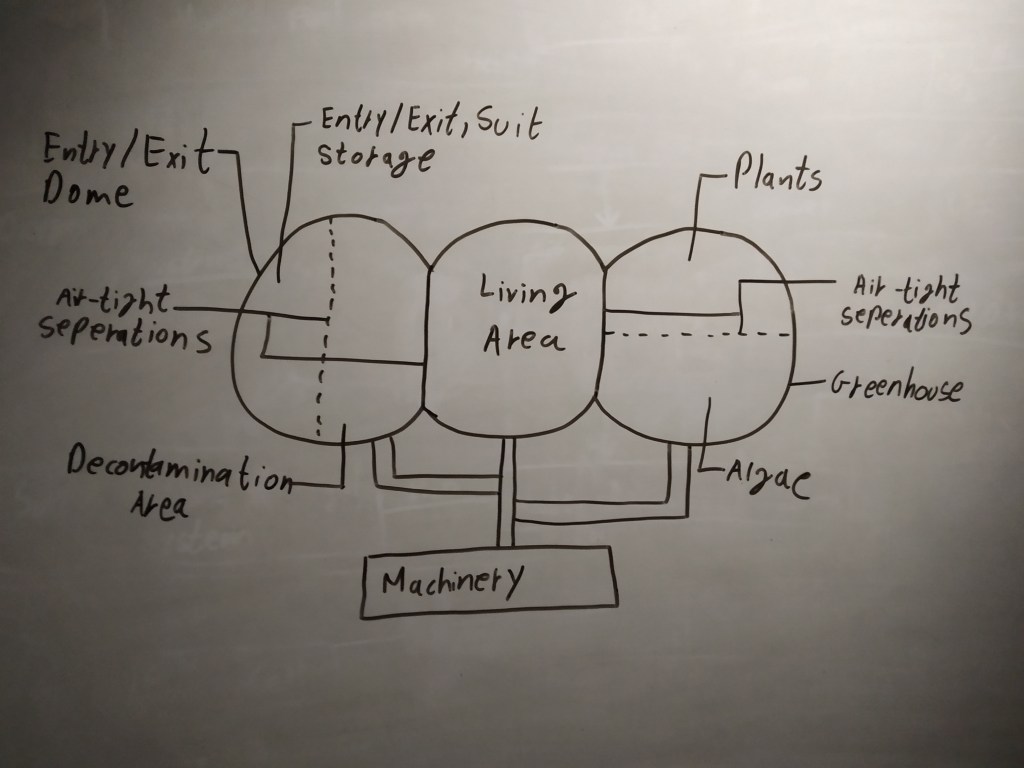 Entry/Exit, Suit
storage
Entry/Exit
Dome
Plants
Living
Area
Air-tight
seperations
Air-tight
seperations
Greenhouse
Decontamination
Area
Algae
Machinery